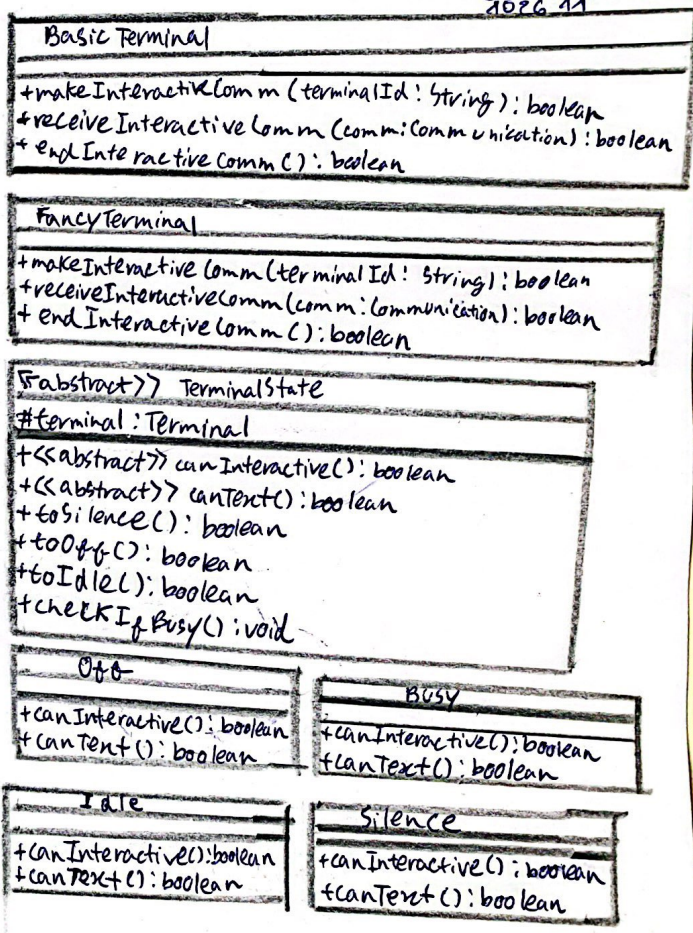 1026 11
Basic Terminal
+makeInteractiveComm (terminalId: String): boolean
+receiveInteractiveComm (comm: Communication): boolean
+endInteractiveComm(): boolean
FancyTerminal
+makeInteractiveComm (terminalId: String): boolean
+receiveInteractiveComm (comm: Communication): boolean
+endInteractiveComm(): boolean
<<abstract>> TerminalState
#terminal: Terminal
+<<abstract>> canInteractive(): boolean
+<<abstract>> canText(): boolean
+toSilence(): boolean
+toOff(): boolean
+toIdle(): boolean
+checkIfBusy(): void
Off
+canInteractive(): boolean
+canText(): boolean
Busy
+canInteractive(): boolean
+canText(): boolean
Idle
+canInteractive(): boolean
+canText(): boolean
Silence
+canInteractive(): boolean
+canText(): boolean